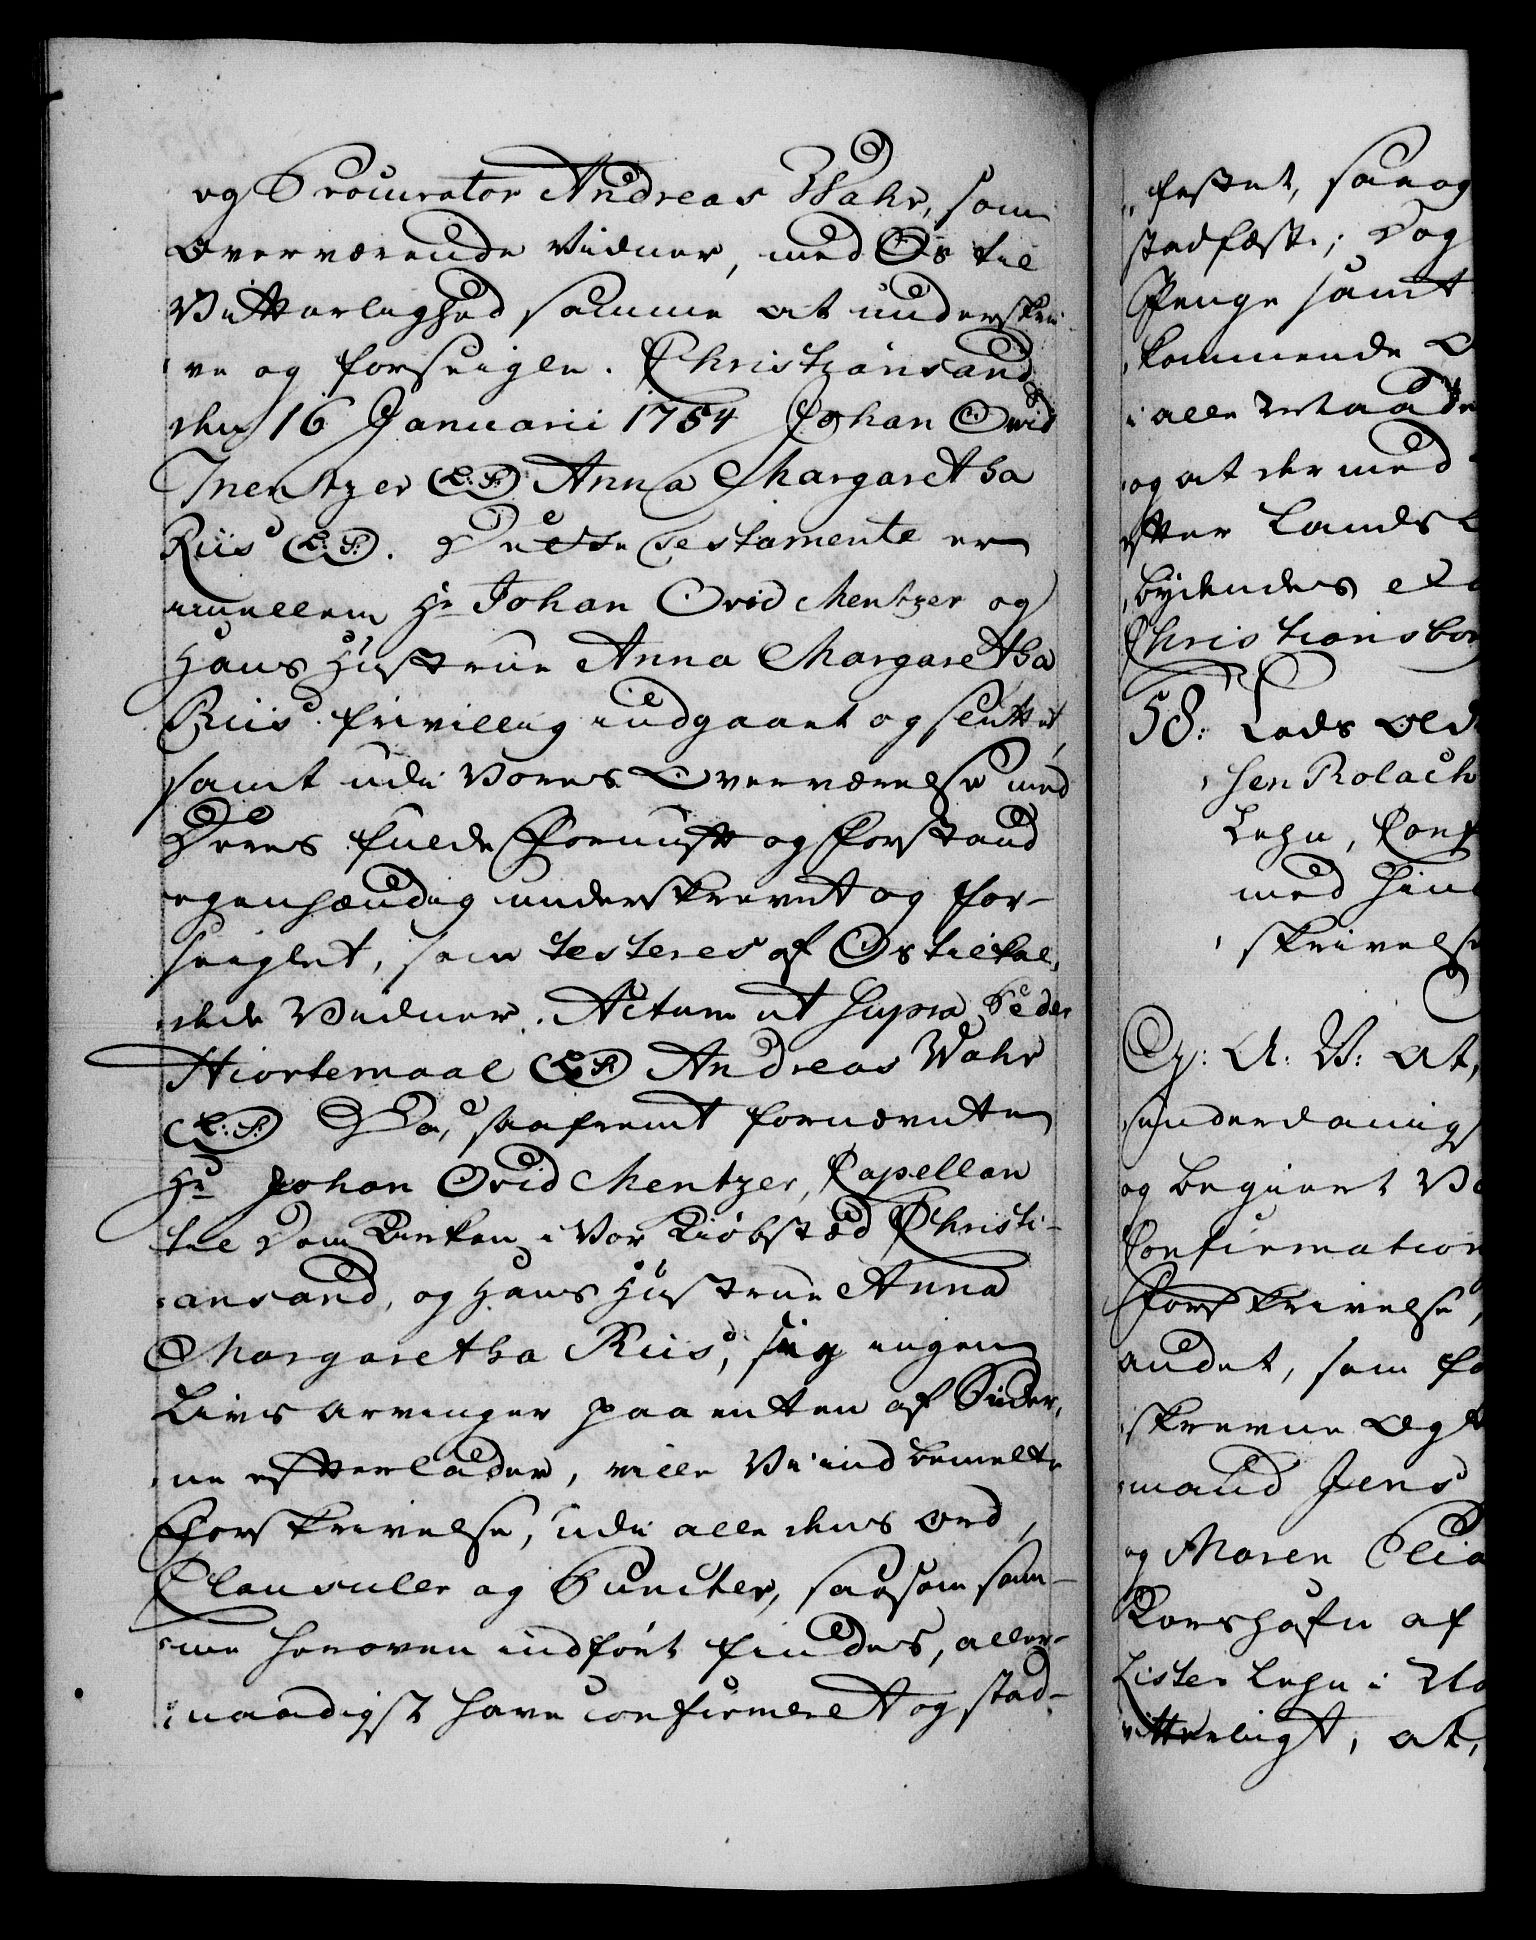 og Procurator Andreas Wahr, som
Overværende Vidner, med Os til
Vitterlighed samme at underskri-
ve og forseigle. Christiansand
den 16 Januarii 1754 Johan Ovid
Mentzer (L.S.) Anna Margaretha
Riis (L.S.). Dette Testamente er
imellem Hr Johan Ovid Mentzer og
Hans Hustrue Anna Margaretha
Riis frivillig indgaaet og sluttet,
samt udi Vores Overværelse med
Deres fulde Fornuft og Forstand
egenhændig underskrevet og for-
seiglet, som testeres af Os tilkal-
dede Vidner. Actum ut Supra Peder
Hiortemaal (L.S.) Andreas Wahr
(L.S.) Da, saafremt fornævnte
Hr Johan Ovid Mentzer, Capellan
til Dom Kirken i Vor Kiøbstæd Christi-
ansand, og Hans Hustrue Anna
Margaretha Riis, sig ingen
Livs Arvinger paa enten af Sider-
ne efterlader, ville Vi ind bemelte
Forskrivelse, udi alle dens Ord,
Clausuler og Puncter, saasom sam-
me heroven indført findes, aller-
naadigst have confirmeret og stad-
festet, saa og
stadfæste; Dog
Penge samt
kommende
i alle Maade
og at dermed
efter Lands L
bydendes
Christiansbor
58: Lads Old
sen Rolach
Lehn, Conf
med Hin
skrivelse
G: A: V: At,
underdanigs
og begieret Vo
Confirmation
Forskrivelse,
andet, som fo
skrevne Ægt
mand Jens
og Maren Elia
Korshafn af
Lister Lehn i No
vitterligt, at,